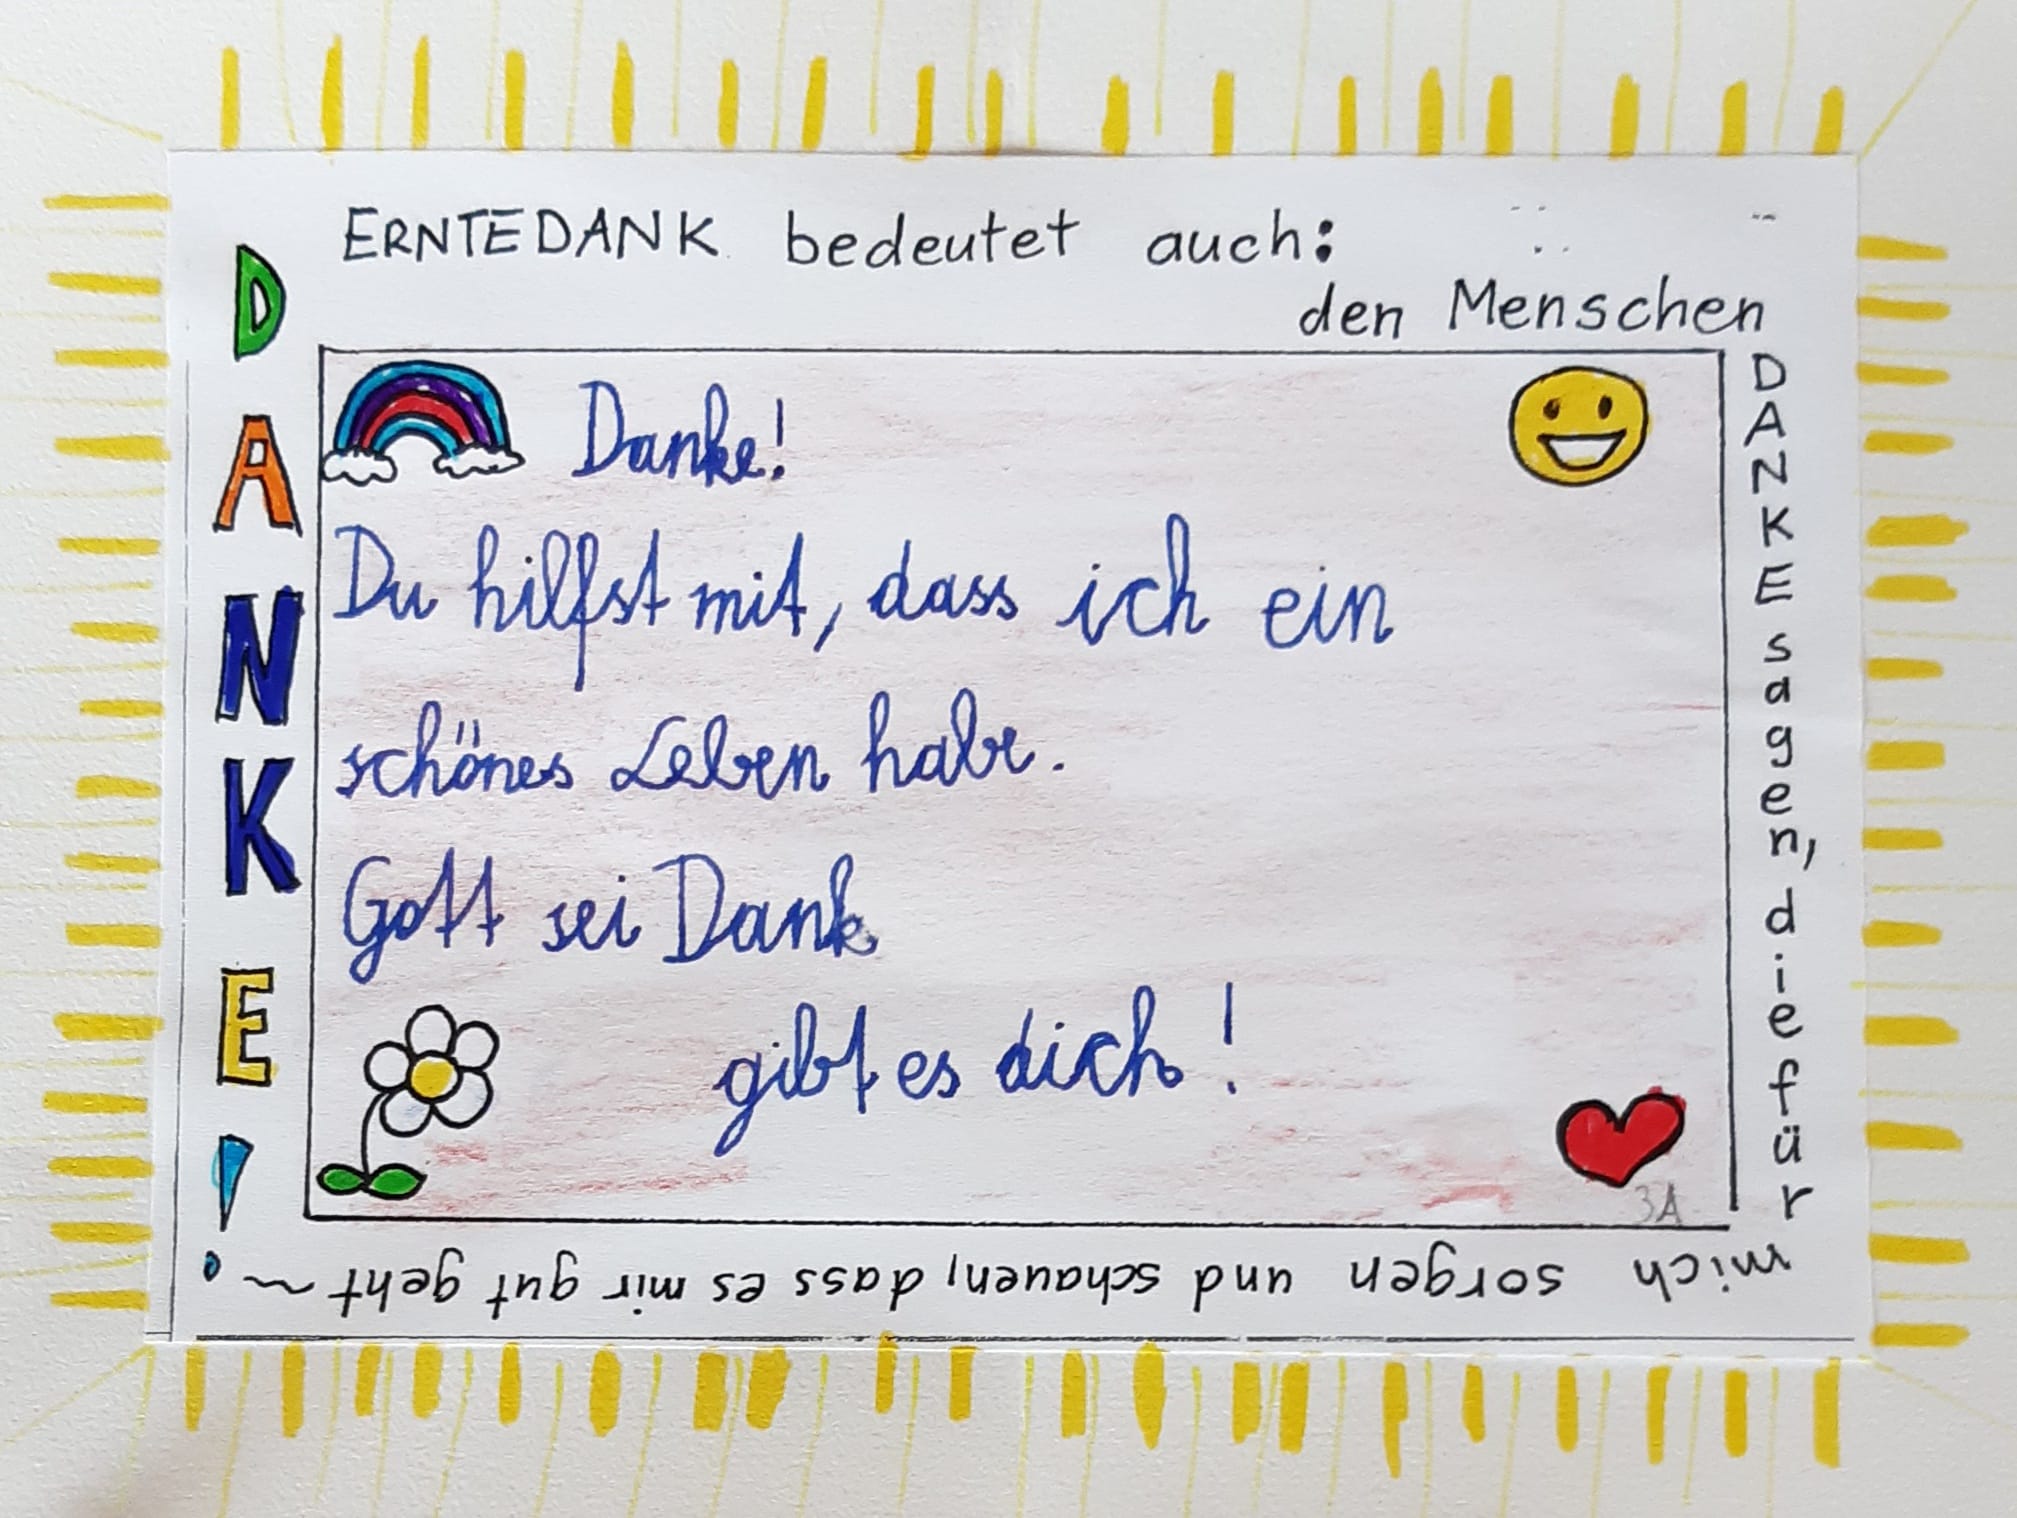 ERNTEDANK bedeutet auch:
den Menschen
DANKE sagen, die für
mich sorgen und schauen, dass es mir gut geht ~
DANKE!
Danke!
Du hilfst mit, dass ich ein
schönes Leben habe.
Gott sei Dank
gibt es dich!
3A